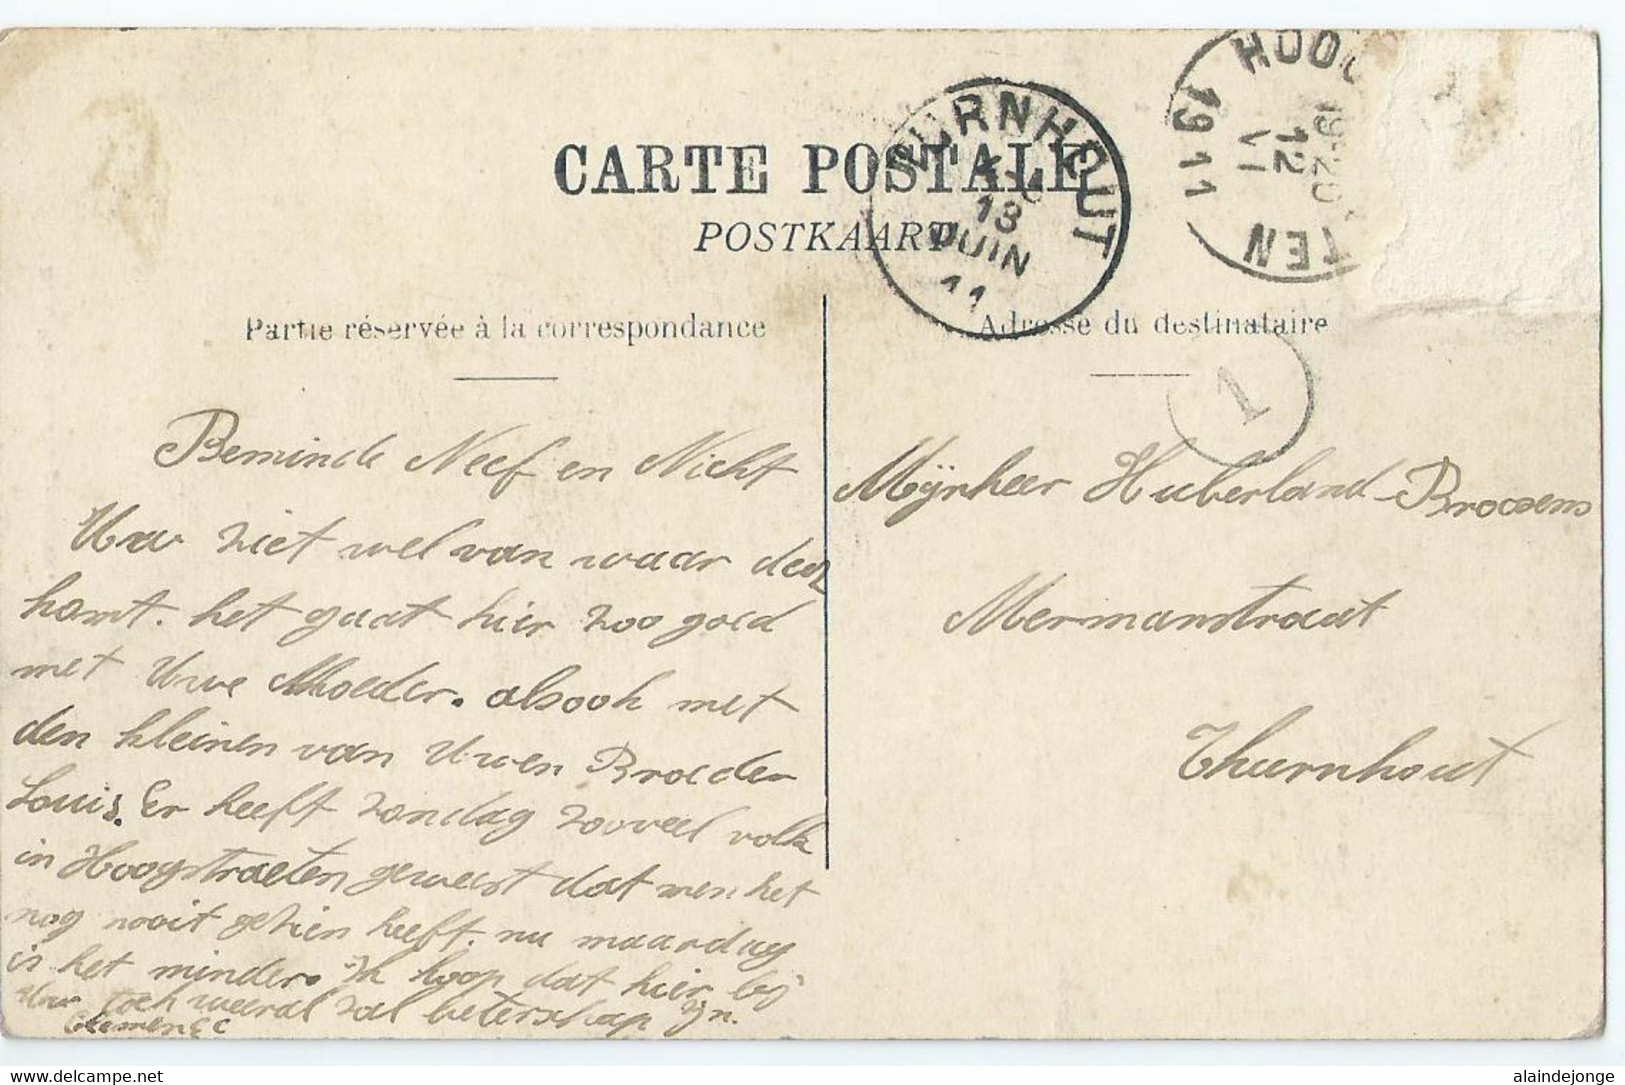 CARTE POSTALE
POSTKAART
TURNHOUT
13
JUIN
11
HOOG
TEN
19-20
12
VI
1911
Partie réservée à la correspondance
Adresse du destinataire
1
Beminde Neef en Nicht
Uw ziet wel van waar deez
komt. het gaat hier zoo goed
met Uwe Moeder. alsook met
den kleinen van Uwen Broeder
Louis. Er heeft zondag zooveel volk
in Hoogstraeten geweest dat men het
nog nooit gezien heeft. nu maandag
is het minder. Ik hoop dat hier bij
Uw toch weeral zal beterschap zijn.
Mijnheer Huberland-Broosens
Mermanstraat
Thurnhout
alaindejonge
www.delcampe.net